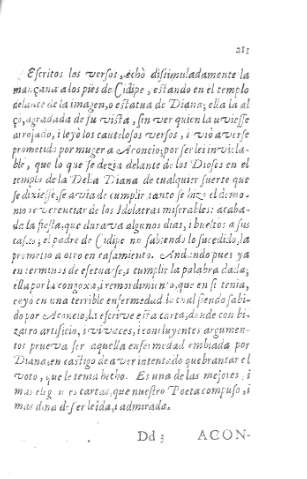 211
Escritos los versos, echò dissimuladamente la
mançana a los pies de Cidipe, estando en el templo
delante de la imagen, o estatua de Diana; ella la al
çò, agradada de su vista, sin ver quien la uviesse
arrojado, i leyò los cautelosos versos, i viò averse
prometido por muger a Aconcio; por ser lei inviola-
ble, que lo que se dezia delante de los Dioses en el
templo de la Delia Diana de cualquier suerte que
se dixesse, se avia de cumplir, tanto se haze el demo-
nio reverenciar de los Idolatras miserables: acaba-
da la fiesta, que durava algunos dias, i bueltos a sus
casas, el padre de Cidipe no sabiendo lo sucedido, la
prometio a otro en casamiento. Andando pues ya
en terminos de efetuarse, i cumplir la palabra dada,
ella por la congoxa, i remordimiento, que en si tenia,
cayo en una terrible enfermedad la cual siendo sabi-
do por Aconcio, la escrive esta carta, donde con bi-
zarro artificio, i vivezas, i concluyentes argumen-
tos prueva ser aquella enfermedad embiada por
Diana, en castigo de aver intentado quebrantar el
voto, que le tenia hecho. Es una de las mejores, i
mas elegantes cartas, que nuestro Poeta compuso, i
mas dina de ser leida, i admirada.
Dd 3 ACON-